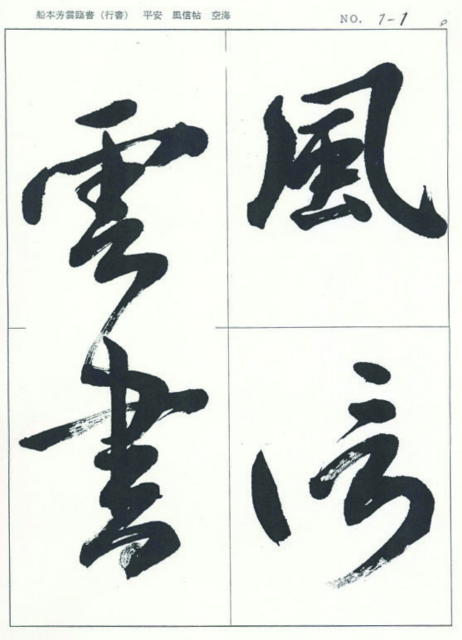 船本芳雲臨書（行書） 平安 風信帖 空海
NO. 1-1
風信
雲書